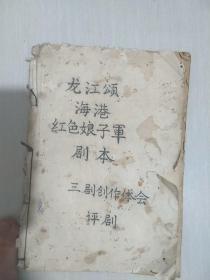 龙江颂
海港
红色娘子軍
剧本
三剧创作体会
评剧